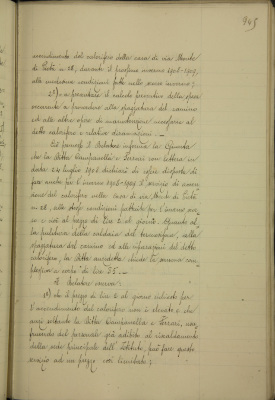 945
accendimento del calorifero della casa di via Monte
di Pietà n. 28, durante il prossimo inverno 1908-1909,
alle medesime condizioni fatte nello scorso inverno;
2°) e a presentare il calcolo preventivo della spesa
occorrente a procedere alla spazzatura del camino
ed alle altre opere di manutenzione necessarie al
detto calorifero e relative diramazioni.
Ciò premesso il Relatore informa la Giunta
che la Ditta Campanella e Ferrari con lettera in
data 24 luglio 1908 dichiarò di essere disposta di
fare anche per l'inverno 1908-1909 il servizio di accen-
sione del calorifero nella casa di via Monte di Pietà
n. 28, alle stesse condizioni praticate per l'inverno scor-
so e cioè al prezzo di Lire 2 al giorno. Riguardo al
la pulitura della caldaia del termosifone, nella
spazzatura del camino ed alle riparazioni del detto
calorifero, la Ditta anzidetta chiede la somma com-
plessiva di Lire 55.
Il Relatore osserva:
1°) che il prezzo di Lire 2 al giorno richiesto per
l'accendimento del calorifero non è elevato e che
anzi soltanto la Ditta Campanella e Ferrari, usu-
fruendo del personale già adibito al riscaldamento
della sede principale dell'Istituto, può fare questo
servizio ad un prezzo così limitato;